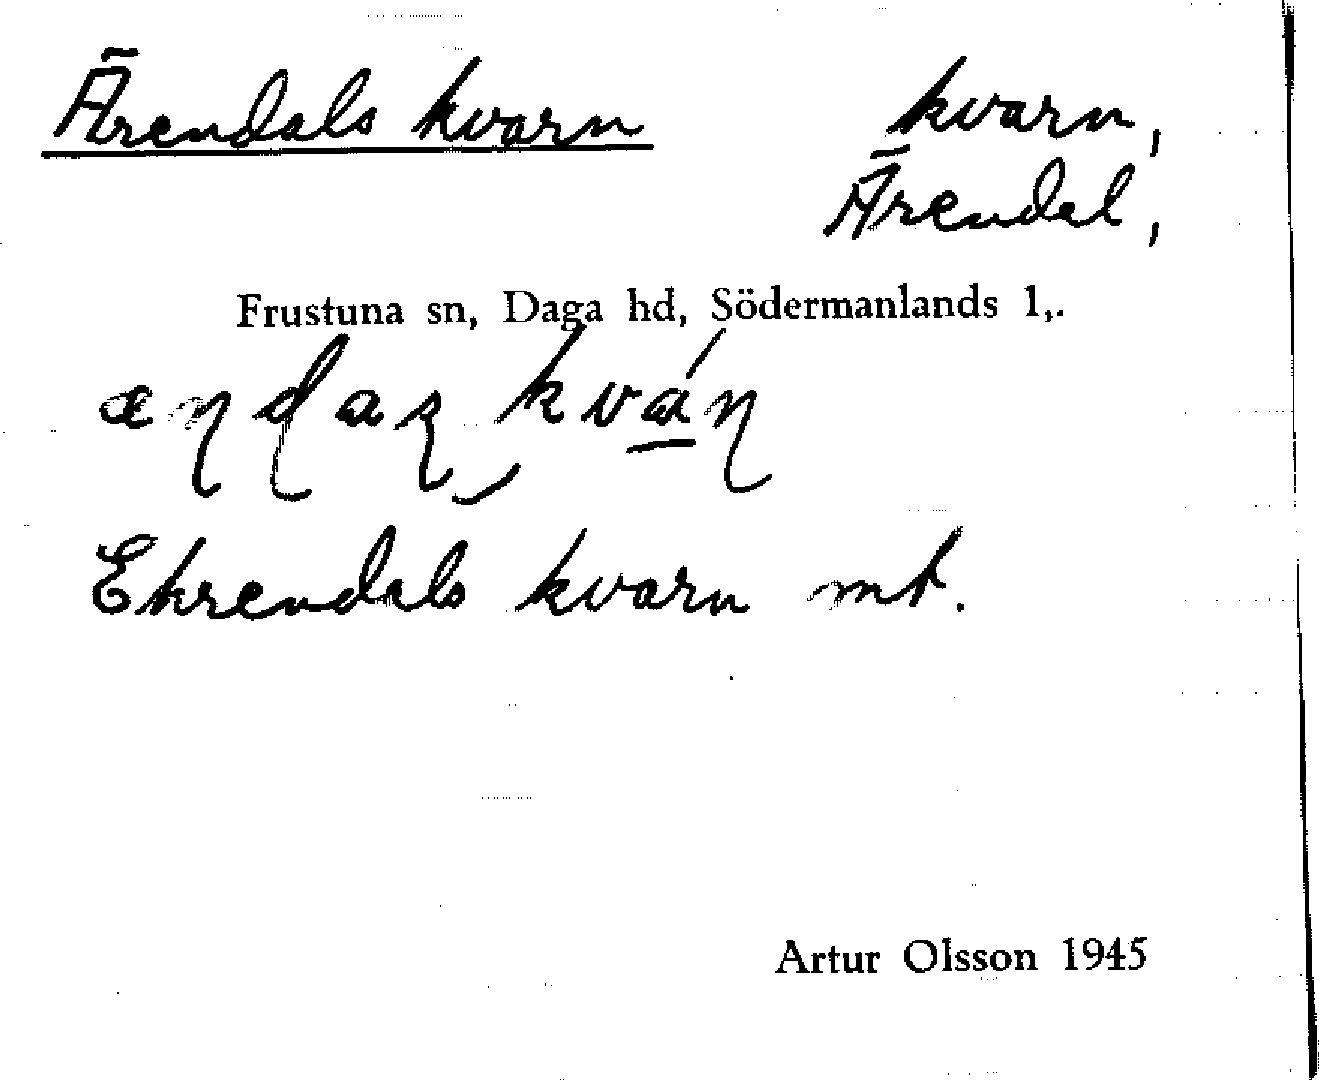 Ärendals kvarn
kvarn,
Ärendal,
Frustuna sn, Daga hd, Södermanlands l,.
Ehrendals kvarn mt.
Artur Olsson 1945